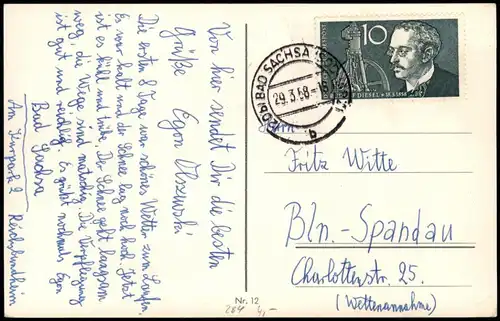 Von hier sendet Dir die besten
Grüße Egon
Die ersten 8 Tage war schönes Wetter zum Laufen.
Er war kalt und der Schnee lag noch hoch. Jetzt
ist es kühl und trübe. Der Schnee geht langsam
weg, die Wege sind matschig. Die Verpflegung
ist gut und reichlich. Es grüßt nochmals Egon
Bad Sachsa
Am Kurpark 2
Reichsbundheim
Nr. 12
284 4,-
BAD SACHSA
29.3.58
b
10
DIESEL
Herrn
Fritz Witte
Bln.-Spandau
Charlottenstr. 25.
(Wettenannahme)